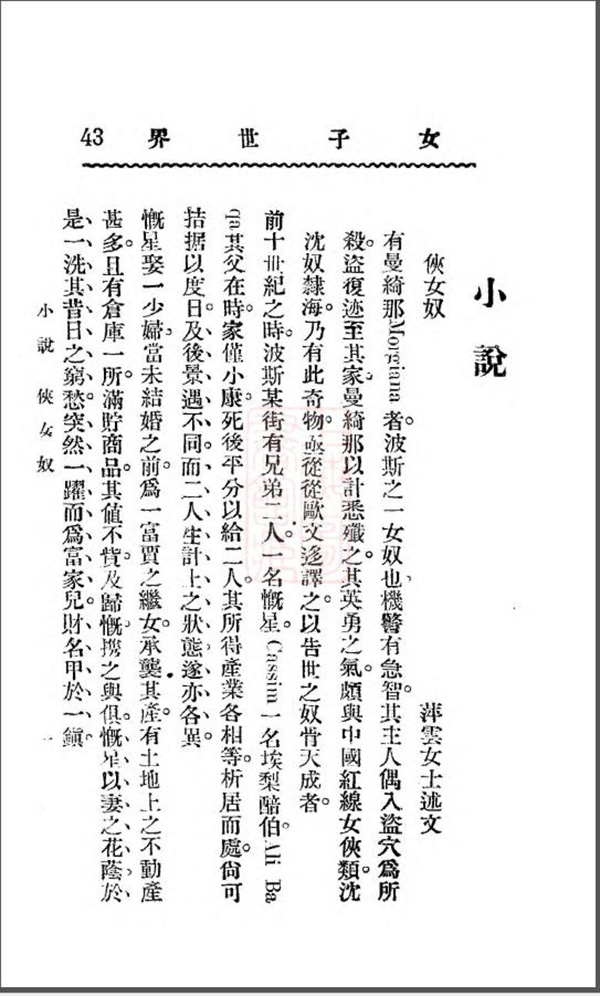 女子世界 43
小說
俠女奴 萍雲女士述文
有曼綺那Morgiana者。波斯之一女奴也、機警有急智。其主人偶入盜穴爲所
殺。盜復迹至其家。曼綺那以計悉殲之。其英勇之氣。頗與中國紅線女俠類。沈
沈奴隸海。乃有此奇物。亟從從歐文迻譯之。以告世之奴骨天成者。
前十世紀之時。波斯某街有兄弟二人。一名慨星。Cassim 一名埃梨醅伯。Ali Ba
其父在時。家僅小康。死後平分以給二人。其所得產業各相等。析居而處。尙可
拮据以度日。及後景遇不同。而二人生計上之狀態遂亦各異。
慨星娶一少婦。當未結婚之前。爲一富賈之繼女。承襲其產。有土地上之不動產
甚多。且有倉庫一所。滿貯商品。其値不貲。及歸慨。攜之與俱。慨星以妻之花蔭。於
是一洗其昔日之窮愁。突然一躍而爲富家兒。財名甲於一鎭。
小說 俠女奴 一